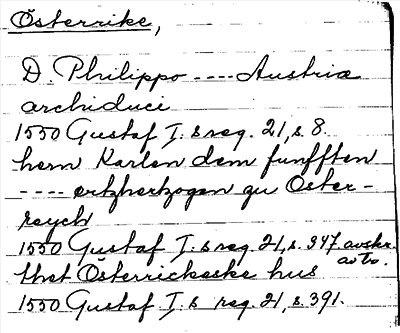 Österrike,
D. Philippo ---- Austriæ
archiduci
1550 Gustaf I:s reg. 21, s. 8.
hern Karlen dem funfften
---- ertzhertzogen zu Öster-
reych
1550 Gustaf I:s reg. 21, s. 347 avskr.
av bv.
thet Österrickeske hus
1550 Gustaf I:s reg. 21, s. 391.